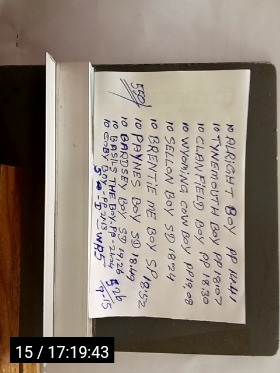 10 ALRIGHT BOY PP 1041
10 TYNEMOUTH BOY PP 1807
10 CLANFIELD BOY PP 18.30
10 WYOMING COW BOY PP 19.08
10 SELLON BOY SD 1824
10 BRENTIE ME BOY SP 1852
10 PAYNES BOY SD 1849
10 BARDSEY BOY SD 19.26
10 BASIL'S THE BOY PP 2124
10 COBY BOY PP 2143
15 / 17:19:43